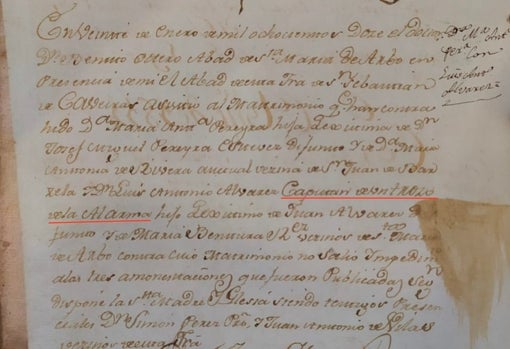 En Veinte de Enero de mil ochocientos Doze el
Dn Benito Ottero Abad de Sta Maria de Arbo en
Presencia de mi el Abad de esta fra de Sn Sebastian
de Caveiras asistio al Matrimonio q han contra
hido Da Maria Anta Pereyra hija Lexitima de Dn
Josef Miguel Pereyra Estevez difunto y de Da Maria
Antonia de Rivera actual vezina de Sn Juan de
y Dn Luis Antonio Alvarez Capitan de un trozo
de la Alarma hijo Lexitimo de Juan Alvarez di
funto y de Maria Bentura vezinos de Sta Maria
de Arbo contra cuio Matrimonio no salio Impedimto
a las tres amonestaciones que fueron Publicadas segn
dispone la Sta Madre Yglesia siendo testigos Presen
ciales Dn Simon Perez Pro, y Juan Antonio de Vila
vezinos de esta fra
Da Ma Anta
Pera
Con
Luis Anto
Alvarez